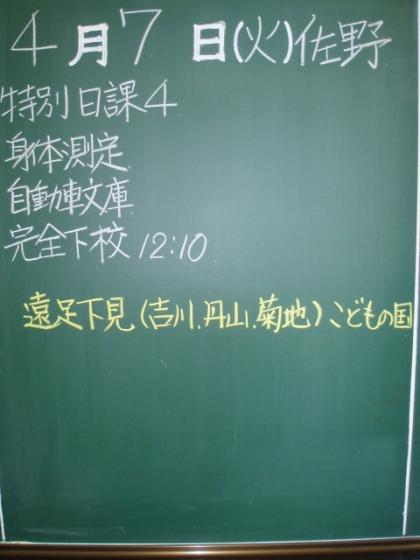 4月7日(火)佐野
特別日課4
身体測定
自動車文庫
完全下校 12:10
遠足下見(吉川、丹山、菊地)こどもの国